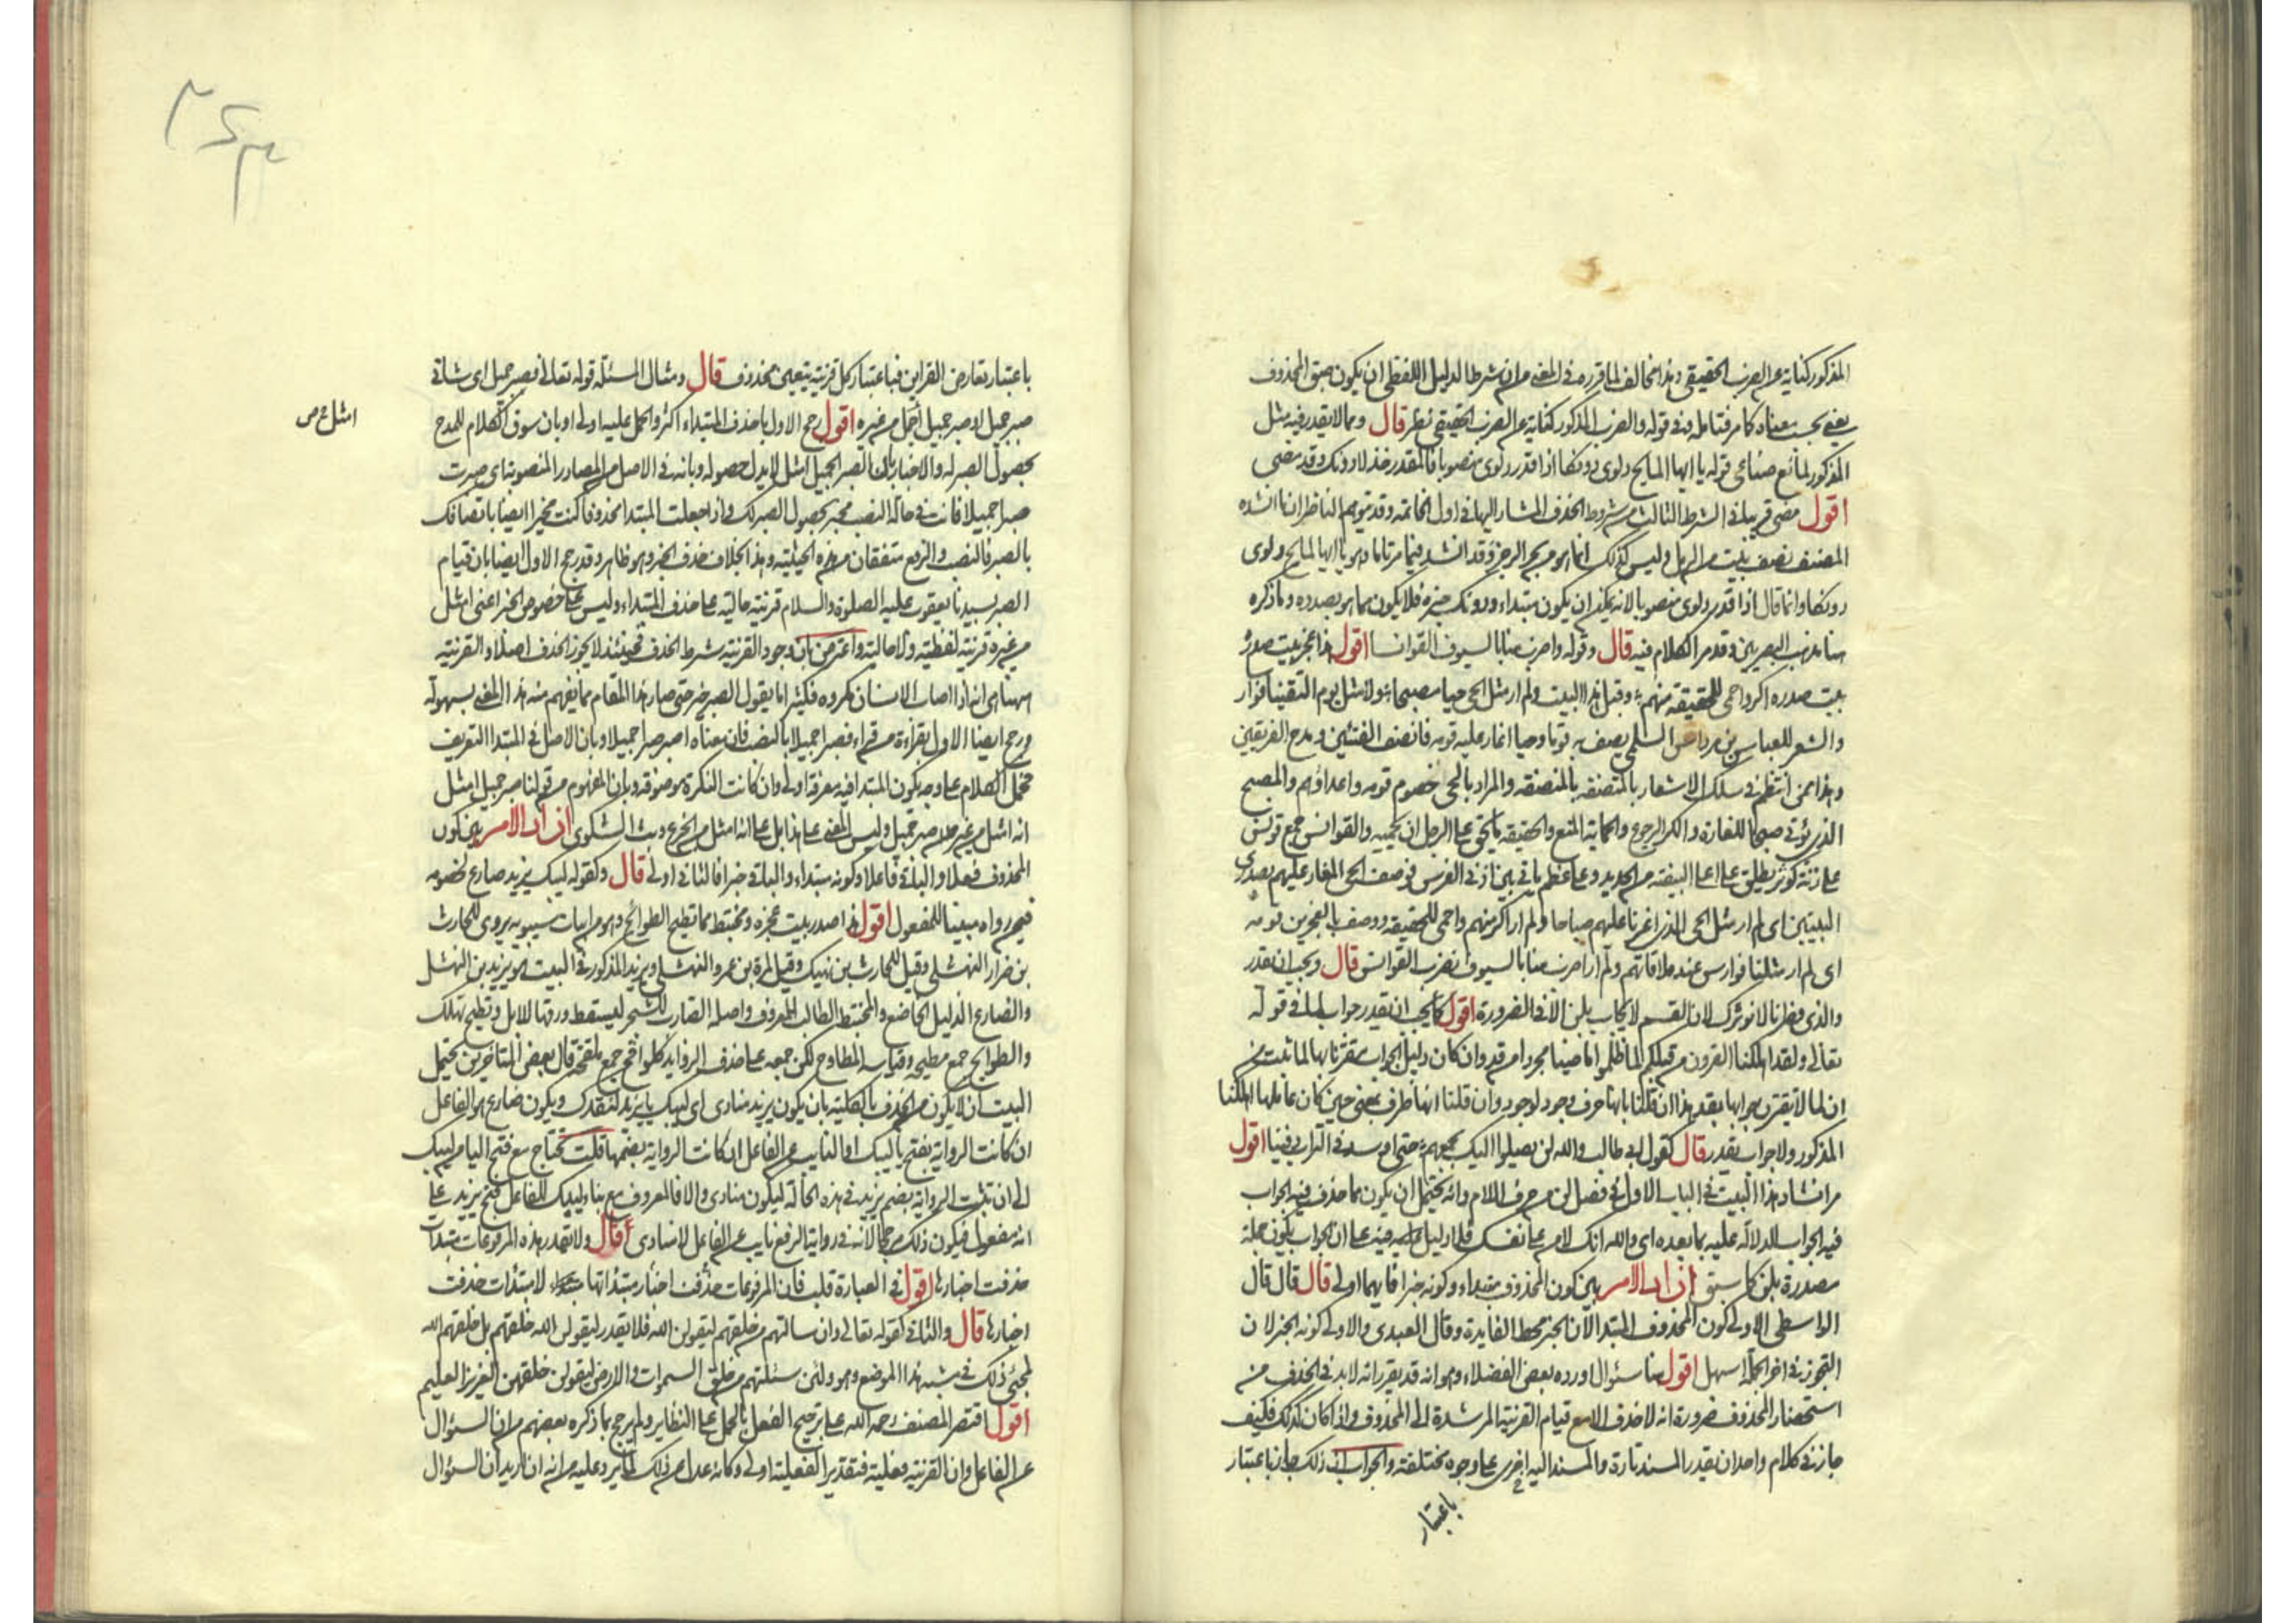 المذكور كناية عن الضرب الحقيقي وهذا مخالف لما قرره في المغني من ان شرط الدليل اللفظي ان يكون طبق المحذوف
يعني بحسب معناه كما مر فتأمله وفي قوله والضرب المذكور كناية عن الضرب الحقيقي نظر قال ومما لا يقدر فيه مثل
المذكور لمانع صناعي قوله يا ايها المايح دلوي دونكا اذا قدر دلوي منصوبا فالمقدر خذ لا دونك وقد مضى
اقول مضى قريبا في الشرط الثالث من شروط الحذف المشار اليها في اول الخاتمة وقد يتوهم الناظر ان ما انشده
المصنف نصف بيت من الرمل وليس كذلك انما هو من بحر الرجز وقد انشد فيما مر تاما وهو يا ايها المايح دلوي
دونكا وانما قال اذا قدر دلوي منصوبا لانه يمكن ان يكون مبتداء ودونك خبره فلا يكون مما هو بصدده وما ذكره
هنا مذهب البصريين وقد مر الكلام فيه قال وقوله واضرب منا بالسيوف القوانسا اقول هذا عجز بيت صدره
بيت صدره اكر واحمى للحقيقة منهم وقبل هذا البيت ولم ار مثل الحي حيا مصبحا ولا مثل يوم التقينا فوارسا
والشعر للعباس بن مرداس السلمي يصف به قوما وحيا اغار عليه قومه فانصف الفئتين ومدح الفريقين
وهذا ممن انتظم في سلك الاشعار بالمتصفة بالمنصفة والمراد بالحي خصوم قومه واعداؤهم والمصبح
الذي يؤتى صبحا للغارة والكر الرجوع والحماية المنع والحقيقة ما يحق على الرجل ان يحميه والقوانس جمع قونس
على زنة كوثر يطلق على اعلى البيضة من الحديد وعلى عظم ناتئ بين اذني الفرس فوصف الحي المغار عليهم بصدري
البيتين اي لم ار مثل الحي الذي اغرنا عليهم صباحا ولم ار اكر منهم واحمى للحقيقة ووصف بالعجزين قومه
اي لم ار مثلنا فوارس عند ملاقاتهم ولم ار اضرب منا بالسيوف نضرب القوانس قال ويجب ان يقدر
والذي فطرنا لا نوثرك لان القسم لا يجاب بلن الا في الضرورة اقول كما يجب ان يقدر جواب لما في قوله
تعالى ولقد اهلكنا القرون من قبلكم لما ظلموا ماضيا مجردا من قد وان كان دليل الجواب مقترنا بها لما ثبت من
ان لما لا يقترن جوابها بقد هذا ان قلنا بانها حرف وجود لوجود وان قلنا انها ظرف بمعنى حين كان عاملها اهلكنا
المذكور ولا جواب يقدر قال كقول ابي طالب والله لن يصلوا اليك بجمعهم حتى اوسد في التراب دفينا اقول
مر انشاد هذا البيت في الباب الاول في فصل لن من حرف اللام وانه يحتمل ان يكون مما حذف فيه الجواب
فيه الجواب لدلالة عليه بما بعده اي والله انك لامن على نفسك فلا دليل فيه على ان الجواب يكون جملة
مصدرة بلن كما سبق اذا دار الامر بين كون المحذوف مبتداء وكونه خبرا فايهما اولى قال قال قال
الواسطي الاولى كون المحذوف المبتدا لان الخبر محط الفايدة وقال العبدي والاولى كونه الخبر لان
التجوز في اخر الجملة اسهل اقول هنا سئوال اورده بعض الفضلاء وهو انه قد يقرر انه لا بد في الحذف من
استحضار المحذوف ضرورة انه لا حذف الا مع قيام القرينة المرشدة الى المحذوف واذا كان كذلك فكيف
جاز في كلام واحد ان يقدر المسند تارة والمسند اليه اخرى على وجوه مختلفة والجواب ان ذلك جاز باعتبار
باعتبار
باعتبار تعارض القراين فباعتبار كل قرينة يتعين محذوف قال ومثال المسئلة قوله تعالى فصبر جميل اي شاني
صبر جميل او صبر جميل اجمل من غيره اقول رجح الاول بان حذف المبتداء اكثر والحمل عليه اولى او بان سوق الكلام للمدح
امثل من ص
بحصول الصبر له والاخبار بان الصبر الجميل امثل لا يدل حصوله وبانه في الاصل من المصادر المنصوبة اي صبرت
صبرا جميلا فانت في حالة النصب مخبر بحصول الصبر لك واذا جعلت المبتدا محذوفا كنت مخبرا ايضا باتصافك
بالصبر فالنصب والرفع متفقان من هذه الحيثية وهذا بخلاف حذف الخبر وهو ظاهر وقد رجح الاول ايضا بان قيام
الصبر بسيدنا يعقوب عليه الصلوة والسلام قرينة حالية على حذف المبتداء وليس على خصوص الخبر اعني امثل
من غيره قرينة لفظية ولا حالية واعترض بان وجود القرينة شرط الحذف فحينئذ لا يجوز الحذف اصلا والقرينة
ههنا هي انه اذا اصاب الانسان مكروه فكثيرا ما يقول الصبر خير حتى صار هذا المقام مما يفهم منه هذا المعنى بسهولة
ورجح ايضا الاول بقراءة من قراء فصبرا جميلا بالنصب فان معناه اصبر صبرا جميلا وبان الاصل في المبتدا التعريف
فحمل الكلام على وجه يكون المبتدا فيه معرفة اولى وان كانت النكرة موصوفة وبان المفهوم من قولنا صبر جميل امثل
انه امثل من غير صبر جميل وليس المعنى على هذا بل على انه امثل من الجزع وبث الشكوى اذا دار الامر بين كون
المحذوف فعلا والباقي فاعلا وكونه مبتداء والباقي خبرا فالثاني اولى قال وكقوله ليبك يزيد ضارع لخصومه
فيمن رواه مبنيا للمفعول اقول هذا صدر بيت عجزه ومختبط مما تطيح الطوائح وهو من ابيات سيبويه يروى للحارث
بن ضرار النهشلي وقيل للحارث بن نهيك وقيل لمرة بن عمرو النهشلي ويزيد المذكور في البيت هو يزيد بن النهشل
والضارع الذليل الخاضع والمختبط الطالب المعروف واصله الضارب للشجر ليسقط ورقها للابل وتطيح تهلك
والطوايح جمع مطيحة وقياسه المطاوح لكن جمعه على حذف الزوايد كلواقح جمع ملقحة قال بعض المتاخرين يحتمل
البيت ان لا يكون من الحذف بالكلية بان يكون يزيد منادى اي ليبك يا يزيد لفقدك ويكون ضارع هو الفاعل
ان كانت الرواية بفتح ياء ليبك او النايب عن الفاعل ان كانت الرواية بضمها قلت يحتاج مع فتح الياء من ليبك
الى ان تثبت الرواية بضم يزيد في هذه الحالة ليكون منادى والا فالمعروف مع بناء ليبك للفاعل فتح يزيد على
انه مفعول فيكون ذلك مرجحا لانه في رواية الرفع نايب عن الفاعل لا منادى قال ولا تقدر هذه المرفوعات مبتدات
حذفت اخبارها اقول في العبارة قلب فان المرفوعات حذفت اخبار مبتداتها لا مبتدات حذفت
اخبارها قال والثاني كقوله تعالى ولئن سالتهم من خلقهم ليقولن الله فلا يقدر ليقولن الله خلقهم بل خلقهم الله
لمجئ ذلك في شبه هذا الموضع وهو ولئن سئلتهم من خلق السموات والارض ليقولن خلقهن العزيز العليم
اقول اقتصر المصنف رحمه الله على ترجيح الفعل بالحمل على النظاير ولم يرجح بما ذكره بعضهم من ان السؤال
عن الفاعل وان القرينة فعلية فتقدير الفعلية اولى وكانه عدل عن ذلك لما يرد عليه من انه ان اريد ان السؤال